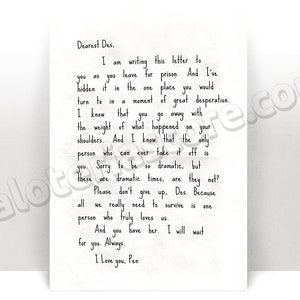 Dearest Des,
I am writing this letter to
you as you leave for prison. And I've
hidden it in the one place you would
turn to in a moment of great desperation.
I know that you go away with
the weight of what happened on your
shoulders. And I know that the only
person who can ever take it off is
Sorry to be so dramatic, but
these are dramatic times, are they not?
Please don't give up, Des. Because
all we really need to survive is one
person who truly loves us.
And you have her. I will wait
for you. Always.
I Love you, Pen